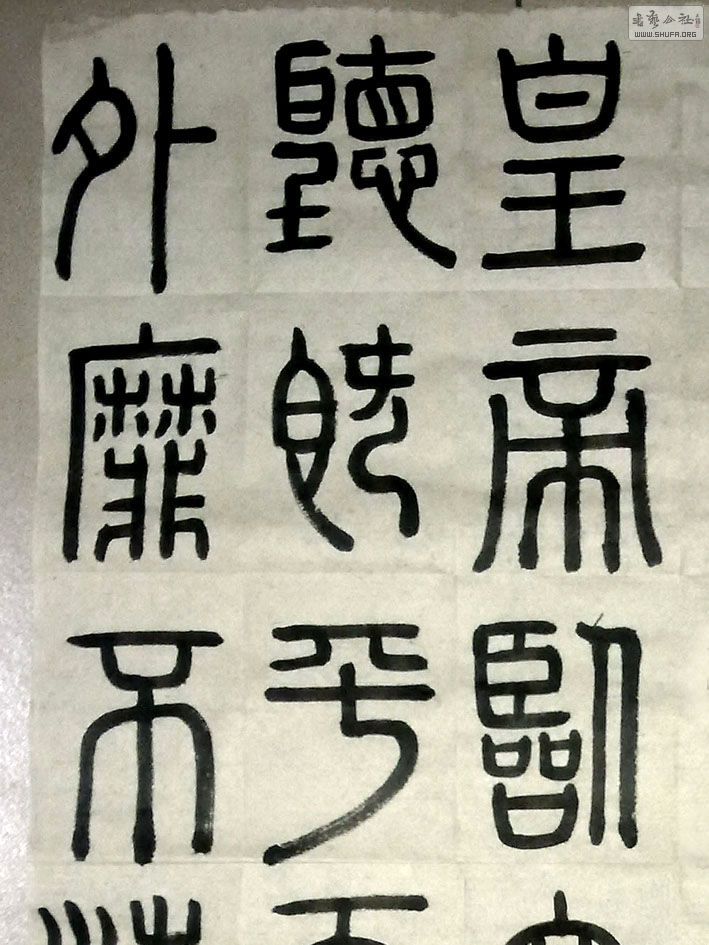 皇帝臨
聽既平
外靡不
書藝公社
WWW.SHUFA.ORG